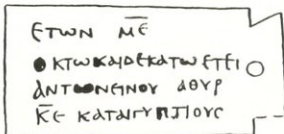 ετων με
οκτωκαιδεκατω ετει
αντωνεινου αθυρ
κε καταιγυπτιους